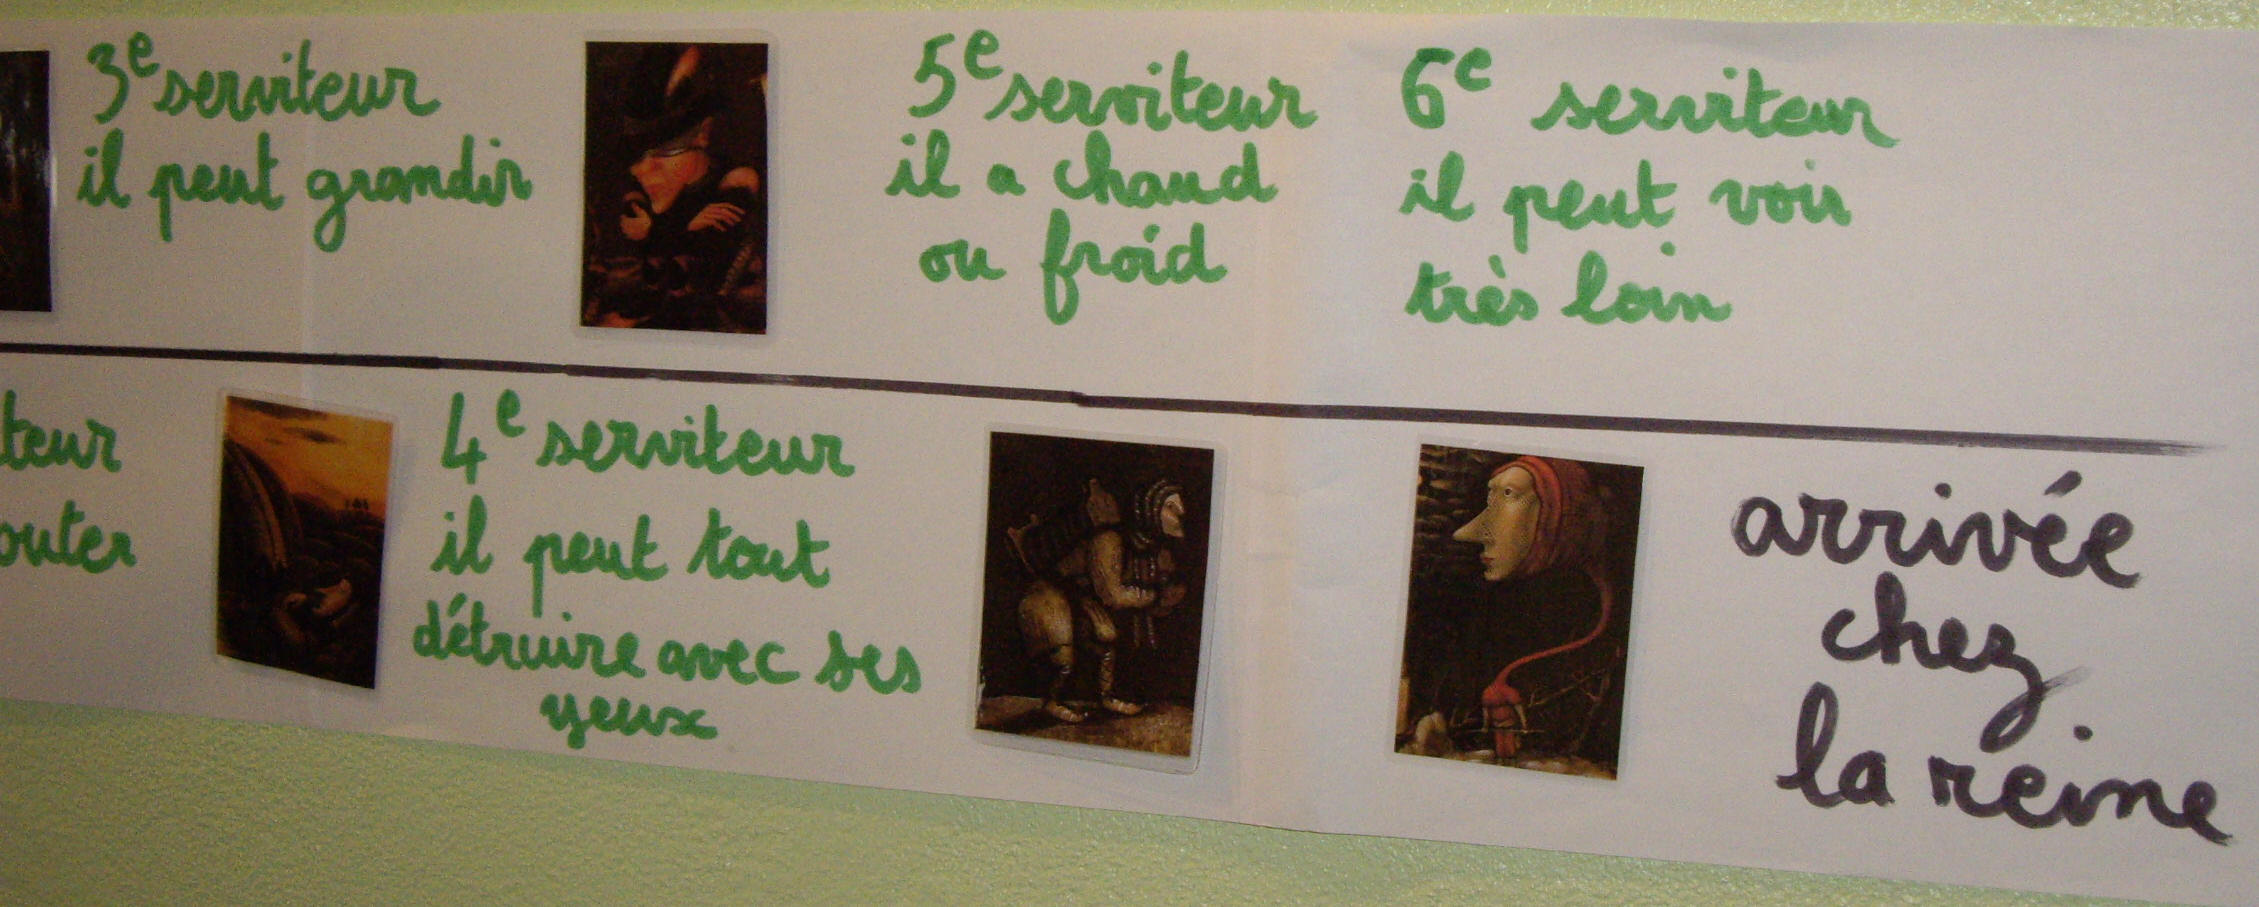 3e serviteur
il peut grandir
5e serviteur
il a chaud
ou froid
6e serviteur
il peut voir
très loin
teur
outer
4e serviteur
il peut tout
détruire avec ses
yeux
arrivée
chez
la reine